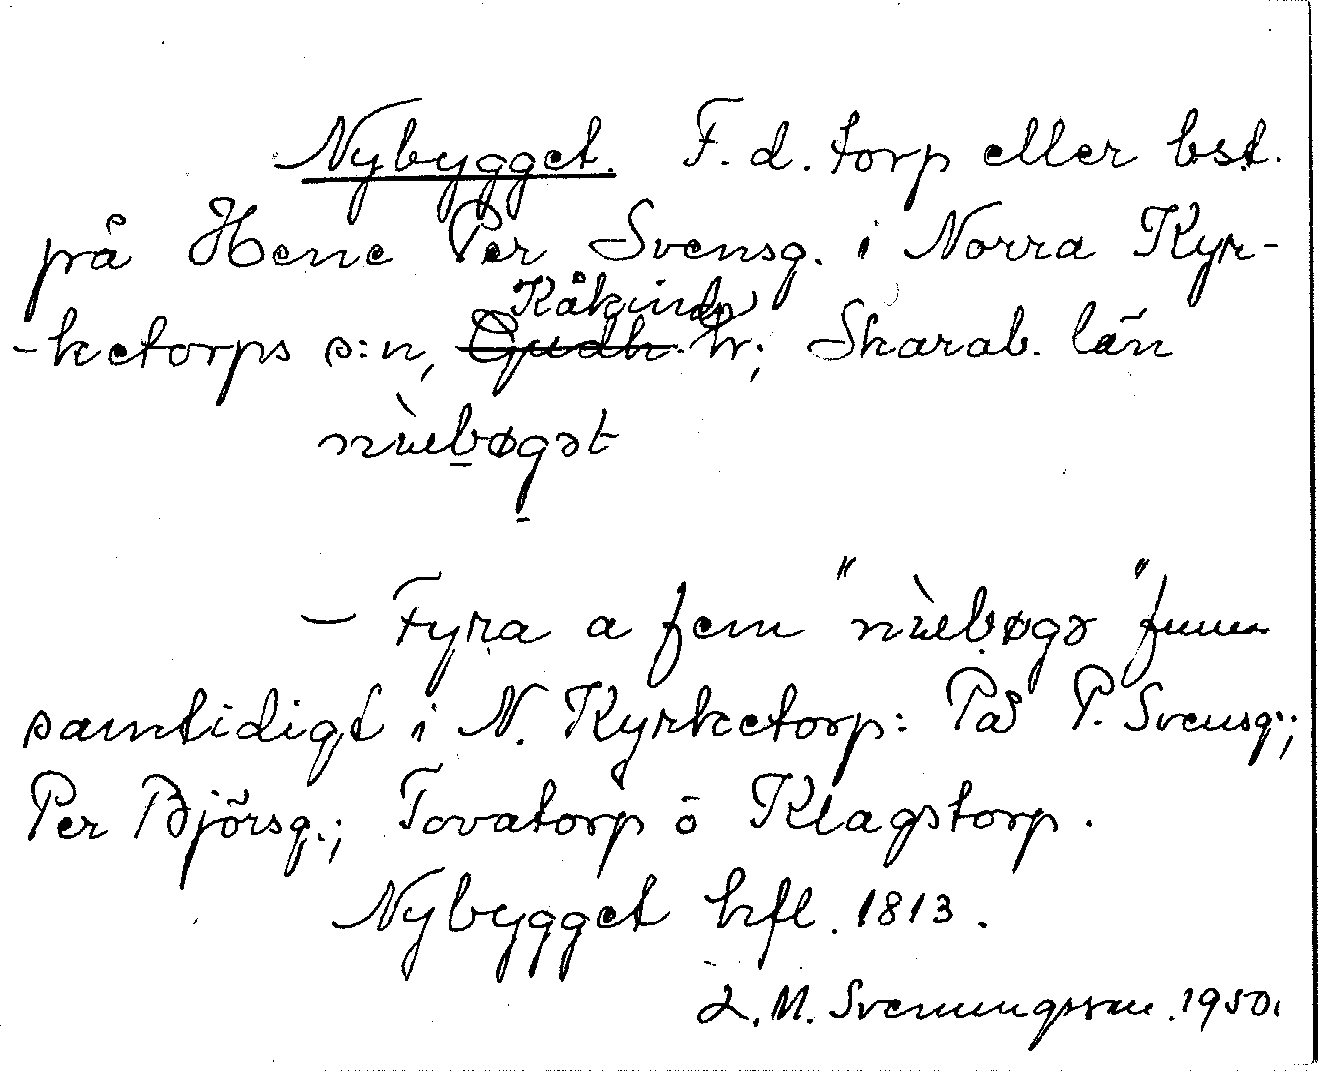 Nybygget. F. d. torp eller bst.
på Hene Per Svensg. i Norra Kyr-
Kåkinds
-ketorps s:n, Gudh. hr; Skarab. län
nùebøgət
– Fyra a fem "nùebøgə" funnes
samtidigt i N. Kyrketorp: På P. Svensg.;
Per Björsg.; Tovatorp o Klagstorp.
Nybygget hfl. 1813.
L. M. Svenungsson. 1950.